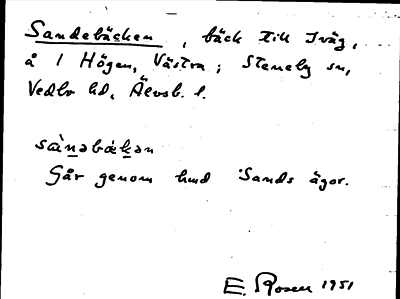 Sandebäcken, bäck till Iväg,
å 1 Högen, Västra; Steneby sn,
Vedbo hd, Älvsb. l.
sàṉəbäḵən
Går genom hmd Sands ägor.
E. Rosen 1951